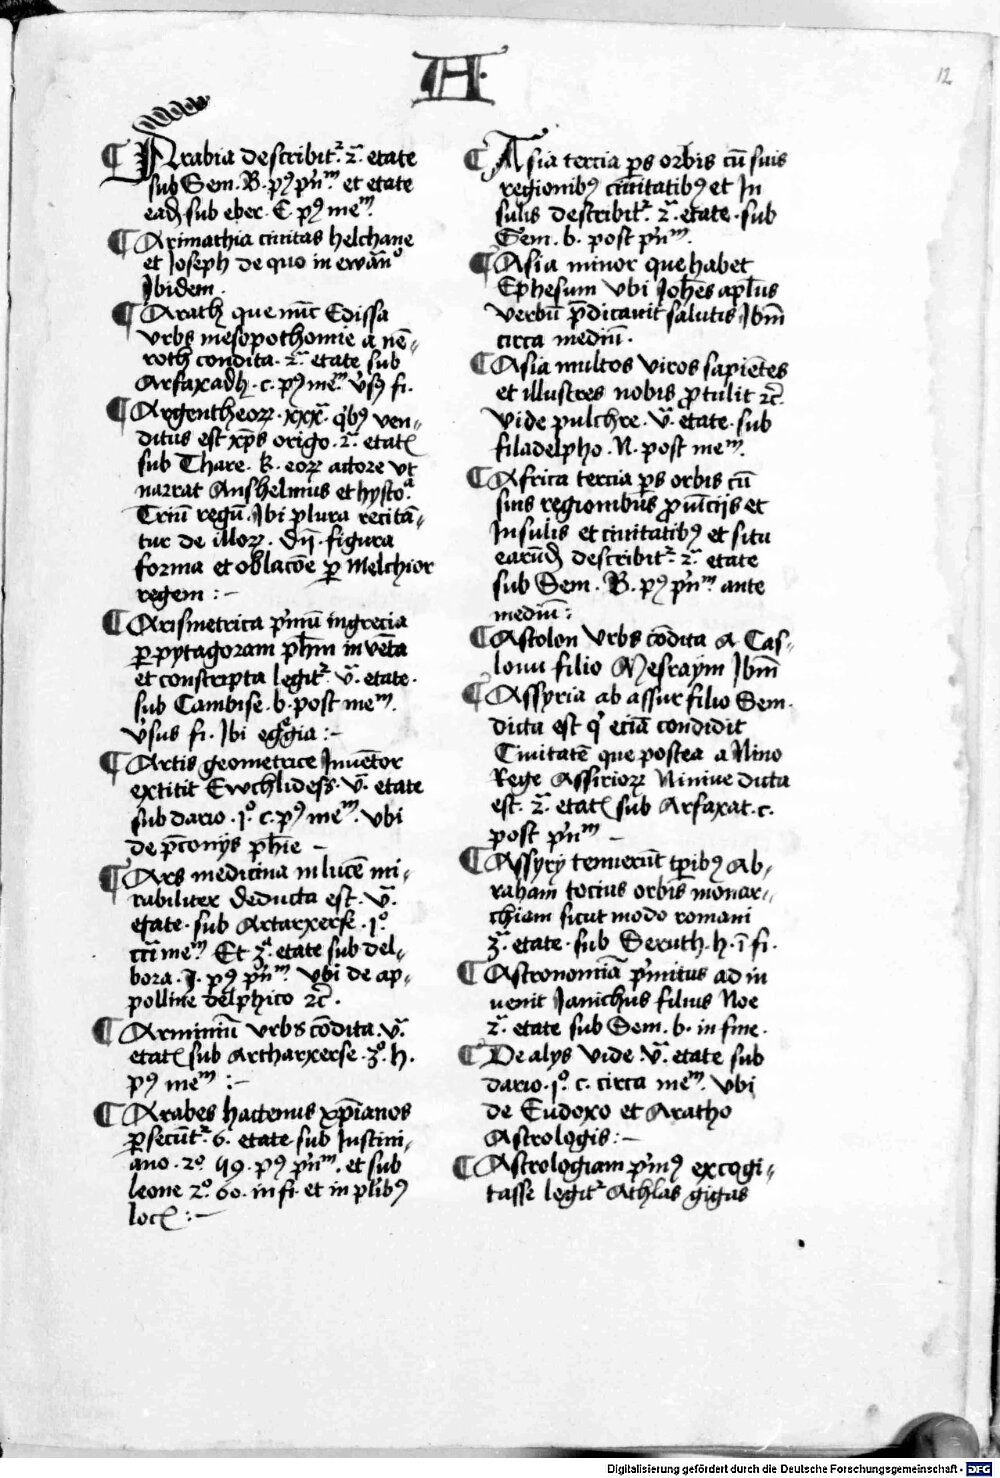 A
12
Arabia describit᷑ .2ª. etate
sub Sem. B. pꝰ pⁿ̄m. et etate
eadꝫ sub eber. E. pꝰ meᵐ.
Arimathia ciuitas helchane
et Joseph de quo in ewānᵒ
Jbidem.
Arath que nūc Edissa
vrbs mesopothomie a nē-
roth condita. 2ª. etate sub
Arfaxadh. c. pꝰ meᵐ. v̉sꝫ fi.
Argentheoꝝ. xxxª. qⁱbꝰ ven-
ditus est xp̄s origo. 2ª. etatꝭ
sub Thare. k. eoꝝ actore vt
narrat Anshelmus et hystoᵃ.
Triū regū. Jbi plura recitā-
tur de illoꝝ. dn̄. figura
forma et oblacōe ꝑ Melchior
regem :-
Arismetrica p̉mū ingrecia
ꝑ pytagoram ph̄m inuēta
et conscripta legit᷑. vª. etate.
sub Cambise. b. post meᵐ.
v̉sus fi. Jbi egᵉgia :-
Artis geometrice Jnuētor
extitit Ewchlidess. vª. etate
sub dario. jᵒ. c. pꝰ meᵐ. vbi
de p̄conijs ph̄ie -
Ars medicina in lucē mi-
rabiliter deducta est. vª.
etate. sub Artarxerse. jᵒ.
circa meᵐ. Et 3ª. etate sub del-
bora. J. pꝰ pⁿ̄m. vbi de ap-
polline delphico ⁊c̄.
Arminiū vrbs cōdita. vª.
etatꝭ sub Artharxerse. 3ᵒ. h.
pꝰ meᵐ :-
Arabes hactenus xp̄ianos
ꝑsecūt᷑. 6. etate sub Justini-
ano. 2ᵒ. 49. pꝰ pⁿ̄m. et sub
leone 2ᵒ. 60. in fi. et in plibꝰ
locꝭ :-
Asia tercia ꝑs orbis cū suis
regionibꝰ ciuitatibꝰ et Jn
sulis describit᷑ 2ª. etate. sub
Sem. b. post pⁿ̄m.
Asia minor que habet
Ephesum vbi Joh̄es apl̄us
verbū p̄dicauit salutis Jbm̄
circa mediū.
Asia multos viros sapiētes
et illustres nobis ꝓtulit ⁊c̄.
vide pulchre. vª. etate. sub
filadelpho. N. post meᵐ.
Africa tercia ꝑs orbis cū
suis regionibus ꝓuīcijs et
Jnsulis et ciuitatibꝰ et situ
earūdꝫ describit᷑ 2ª. etate
sub Sem. B. pꝰ pⁿ̄m. ante
mediū :
Astolon vrbs cōdita a Cas-
louu filio Mesraÿm Jbm̄
Assyria ab assur filio Sem.
dicta est qⁱ eciā condidit
Ciuitatē que postea a Nino
Rege Assirioꝝ Niniue dicta
est. 2ª. etatꝭ sub Arfaxat. c.
post pⁿ̄m -
Assyrÿ tenuerūt tp̄ibꝰ Ab-
raham tocius orbis monar-
chiam sicut modo romani
3ª. etate. sub Seruth. h. ī fi.
Astronomiā p̉mitus ad in
uenit Janichus filius Noe
2ª. etate sub Sem. b. in fine.
De alijs vide vª. etate sub
dario. jᵒ. c. circa meᵐ. vbi
de Eudoxo et Aratho
Astrologis :-
Astrologiam p̉mꝰ excogi-
tasse legit᷑ Athlas gigas
Digitalisierung gefördert durch die Deutsche Forschungsgemeinschaft - DFG